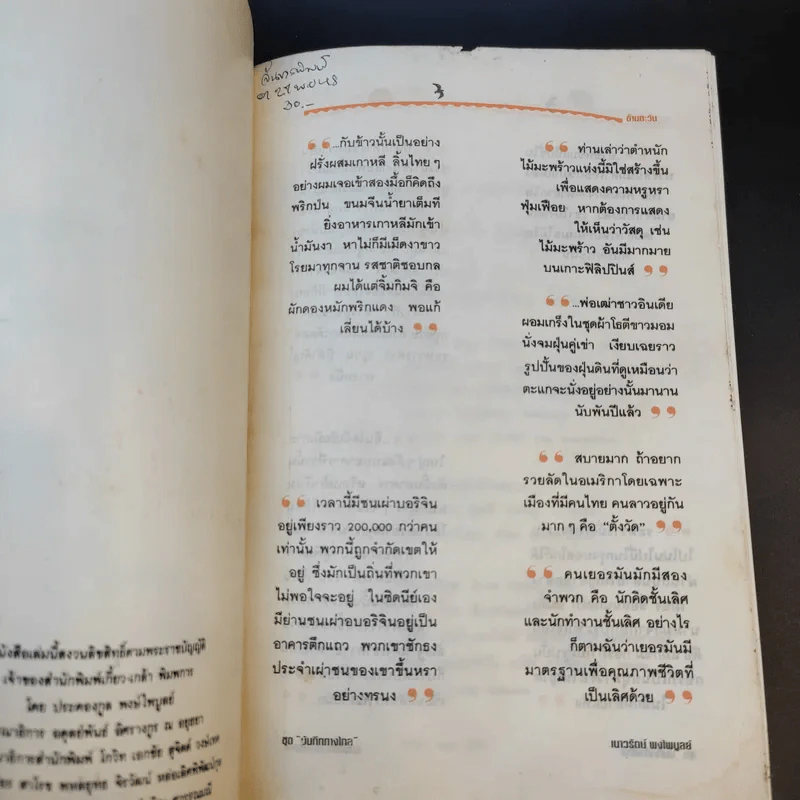 3
30.-
ข้ามตะวัน
...กับข้าวนั้นเป็นอย่าง
ฝรั่งผสมเกาหลี ลิ้นไทยๆ
อย่างผมเจอเข้าสองมื้อก็คิดถึง
พริกป่น ขนมจีนน้ำยาเต็มที
ยิ่งอาหารเกาหลีมักเข้า
น้ำมันงา หาไม่ก็มีเม็ดงาขาว
โรยมาทุกจาน รสชาติชอบกล
ผมได้แต่จิ้มกิมจิ คือ
ผักดองหมักพริกแดง พอแก้
เลี่ยนได้บ้าง
เวลานี้มีชนเผ่าบอริจิน
อยู่เพียงราว 200,000 กว่าคน
เท่านั้น พวกนี้ถูกจำกัดเขตให้
อยู่ ซึ่งมักเป็นถิ่นที่พวกเขา
ไม่พอใจจะอยู่ ในซิดนีย์เอง
มีย่านชนเผ่าอบอริจินอยู่เป็น
อาคารตึกแถว พวกเขาชักธง
ประจำเผ่าชนของเขาขึ้นหรา
อย่างทรนง
ท่านเล่าว่าตำหนัก
ไม้มะพร้าวแห่งนี้มิใช่สร้างขึ้น
เพื่อแสดงความหรูหรา
ฟุ่มเฟือย หากต้องการแสดง
ให้เห็นว่าวัสดุ เช่น
ไม้มะพร้าว อันมีมากมาย
บนเกาะฟิลิปปินส์
...พ่อเฒ่าชาวอินเดีย
ผอมเกร็งในชุดผ้าโธตีขาวมอม
นั่งจมฝุ่นคู่เข่า เงียบเฉยราว
รูปปั้นของฝุ่นดินที่ดูเหมือนว่า
ตะแกจะนั่งอยู่อย่างนั้นมานาน
นับพันปีแล้ว
สบายมาก ถ้าอยาก
รวยลัดในอเมริกาโดยเฉพาะ
เมืองที่มีคนไทย คนลาวอยู่กัน
มากๆ คือ "ตั้งวัด"
คนเยอรมันมักมีสอง
จำพวก คือ นักคิดชั้นเลิศ
และนักทำงานชั้นเลิศ อย่างไร
ก็ตามฉันว่าเยอรมันมี
มาตรฐานเพื่อคุณภาพชีวิตที่
เป็นเลิศด้วย
ชุด "บันทึกทางไกล"
เนาวรัตน์ พงษ์ไพบูลย์
นังสือเล่มนี้สงวนลิขสิทธิ์ตามพระราชบัญญัติ
เจ้าของสำนักพิมพ์เกี้ยว-เกล้า พิมพการ
โดย ประคองกูล พงษ์ไพบูลย์